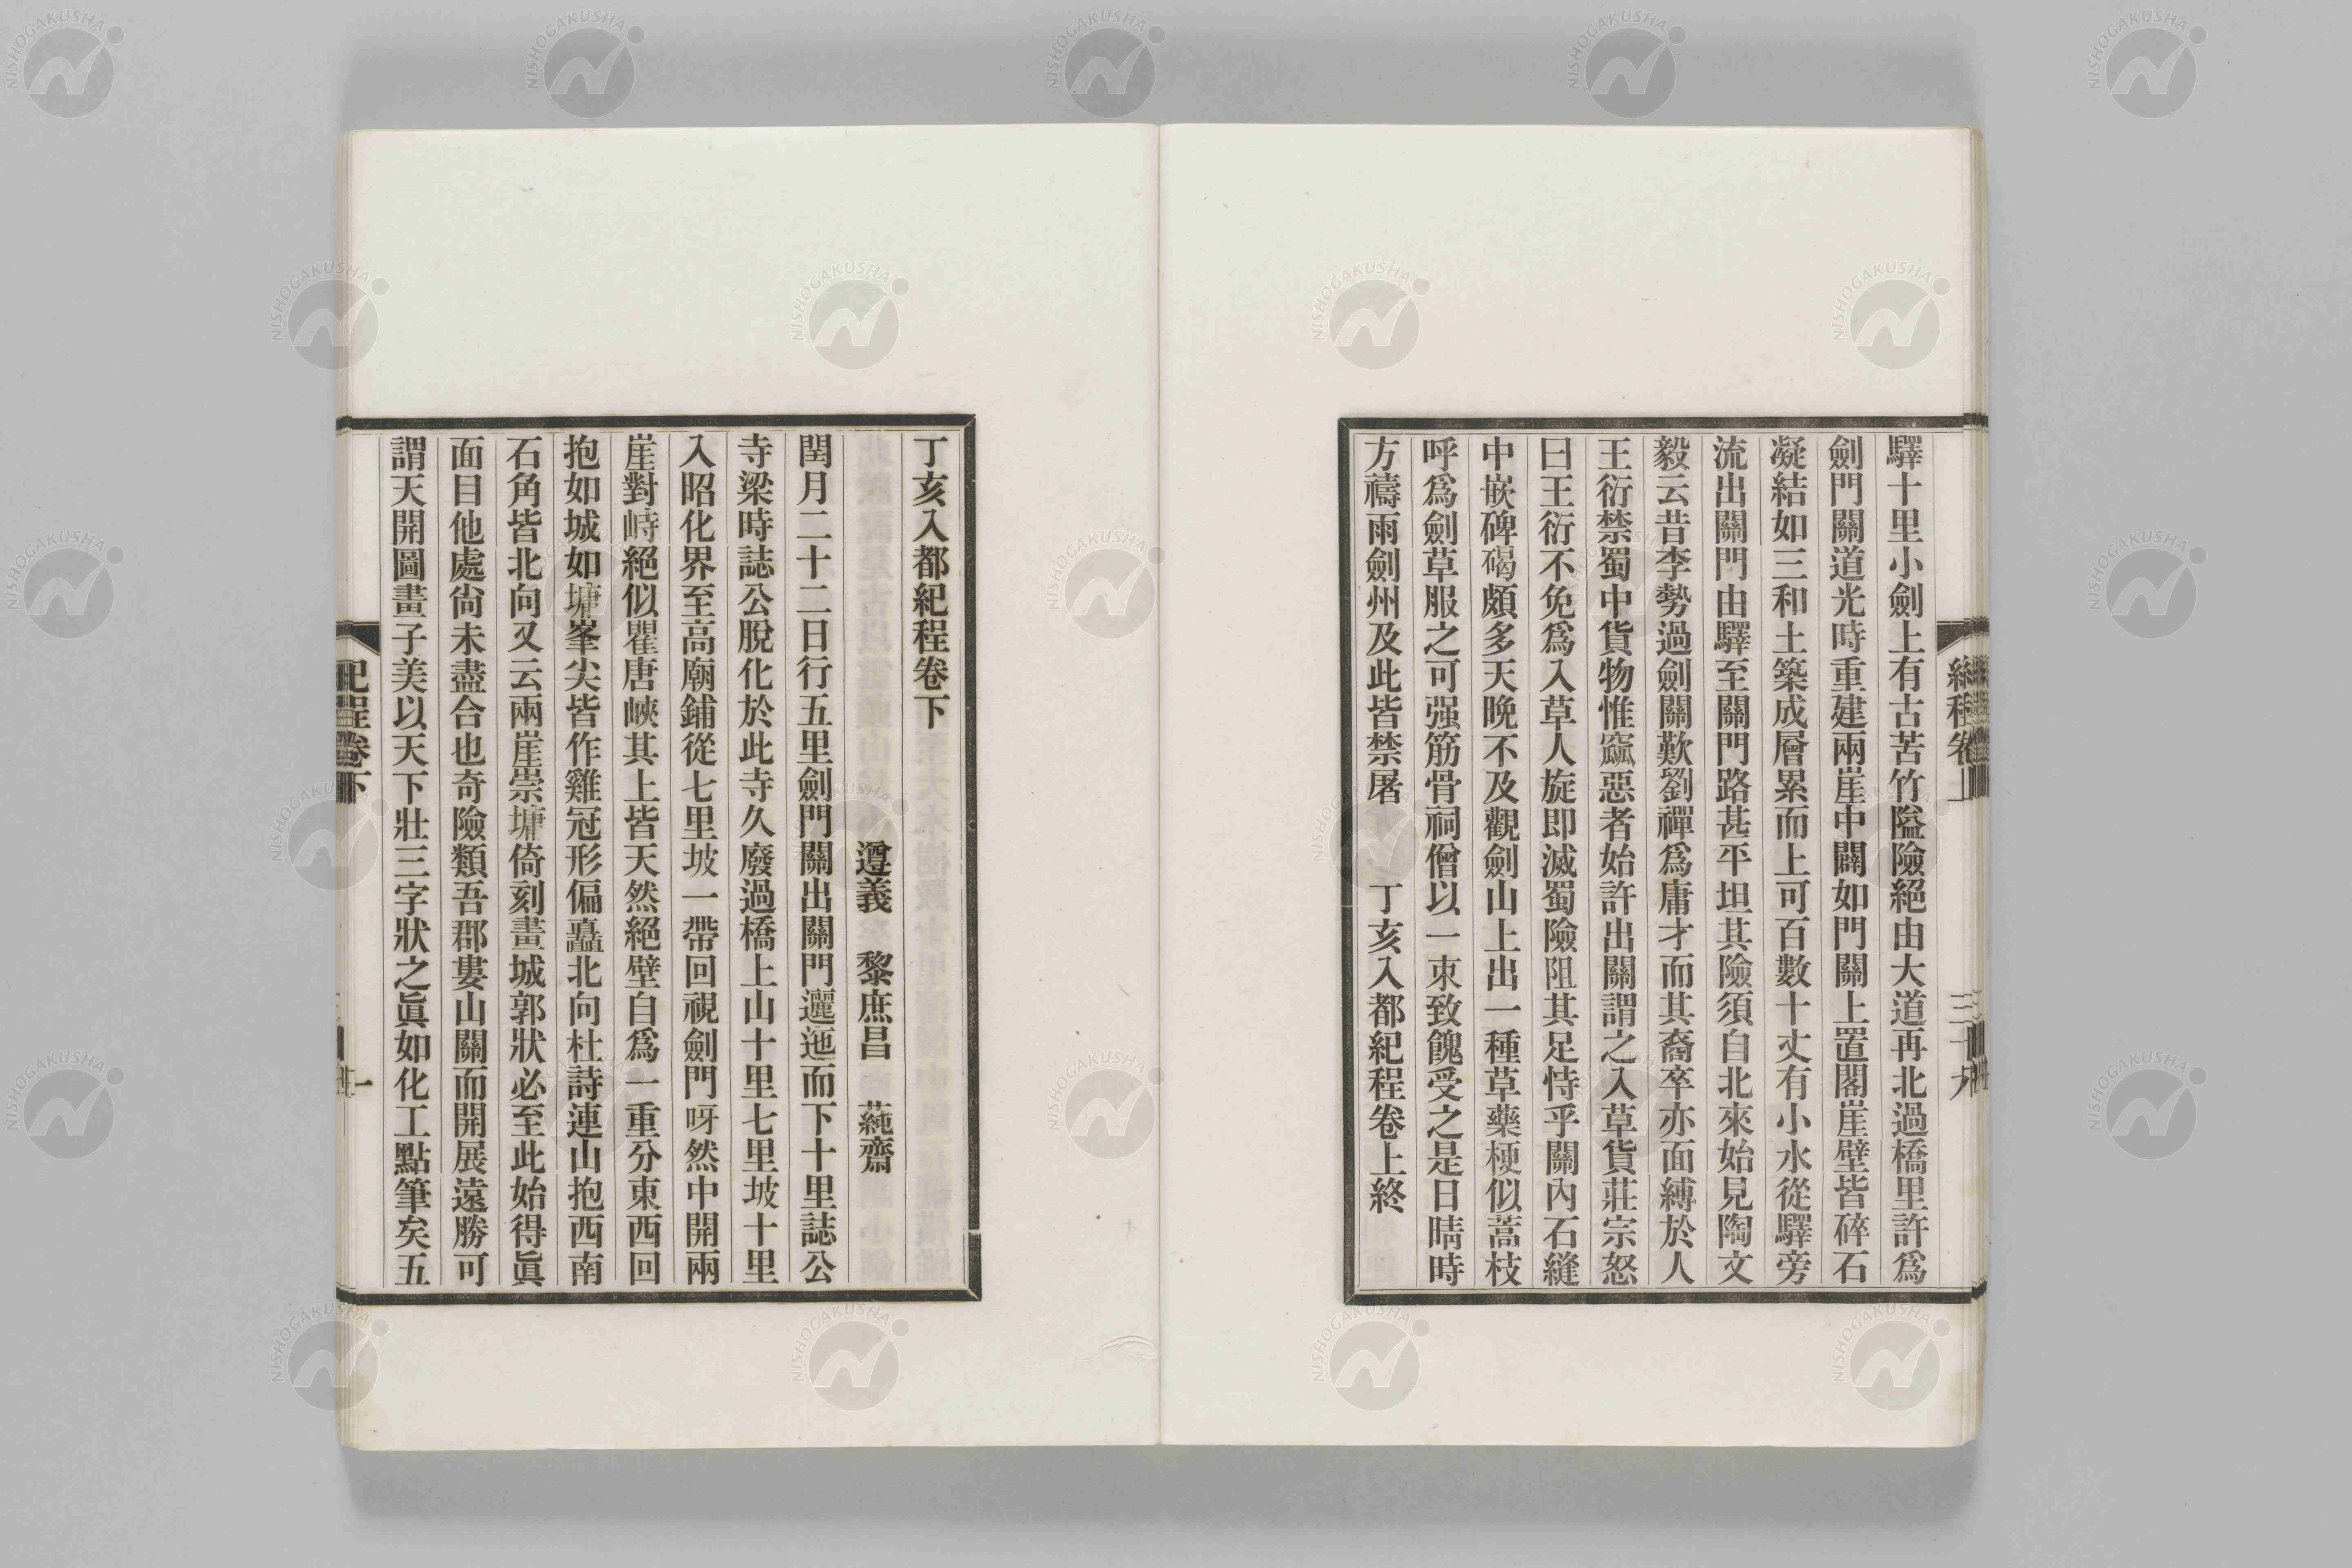 驛十里小劍上有古苦竹隘險絕由大道再北過橋里許爲
劍門關道光時重建兩崖中闢如門關上置閣崖壁皆碎石
凝結如三和土築成層累而上可百數十丈有小水從驛旁
流出關門由驛至關門路甚平坦其險須自北來始見陶文
毅云昔李勢過劍關歎劉禪爲庸才而其裔卒亦面縛於人
王衍禁蜀中貨物惟窳惡者始許出關謂之入草貨莊宗怒
曰王衍不免爲入草人旋即滅蜀險阻其足恃乎關內石縫
中嵌碑碣頗多天晚不及觀劍山上出一種草藥梗似蒿枝
呼爲劍草服之可强筋骨祠僧以一束致餽受之是日晴時
方禱雨劍州及此皆禁屠　　丁亥入都紀程卷上終
丁亥入都紀程卷下
遵義　黎庶昌　蒓齋
閏月二十二日行五里劍門關出關門邐迤而下十里誌公
寺梁時誌公脫化於此寺久廢過橋上山十里七里坡十里
入昭化界至高廟鋪從七里坡一帶回視劍門呀然中開兩
崖對峙絕似瞿唐峽其上皆天然絕壁自爲一重分東西回
抱如城如墉峯尖皆作雞冠形偏矗北向杜詩連山抱西南
石角皆北向又云兩崖崇墉倚刻畫城郭狀必至此始得眞
面目他處尙未盡合也奇險類吾郡婁山關而開展遠勝可
謂天開圖畫子美以天下壯三字狀之眞如化工點筆矣五
紀程卷下
一
NISHOGAKUSHA